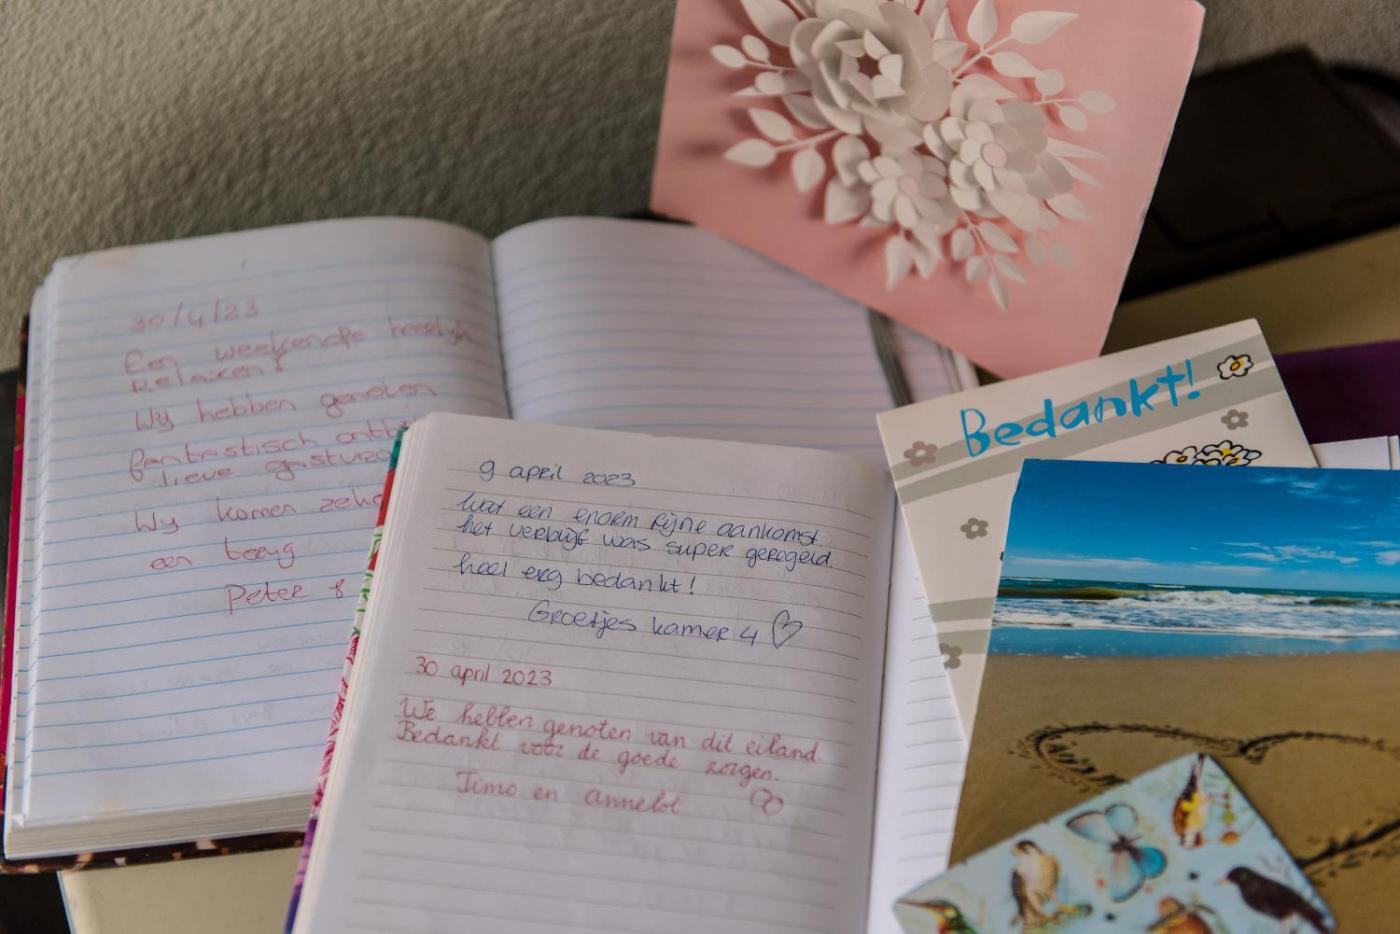 30/4/23
Een weekende heerlijk
Relaxen!
Wy hebben genoten
fantastisch ontb
lieve gastvro
Wy komen zeke
een terug
Peter &
9 april 2023
wat een enorm fijne aankomst
het verblijf was super geregeld.
heel erg bedankt!
Groetjes kamer 4
30 april 2023
We hebben genoten van dit eiland.
Bedankt voor de goede zorgen.
Timo en Annelot
Bedankt!